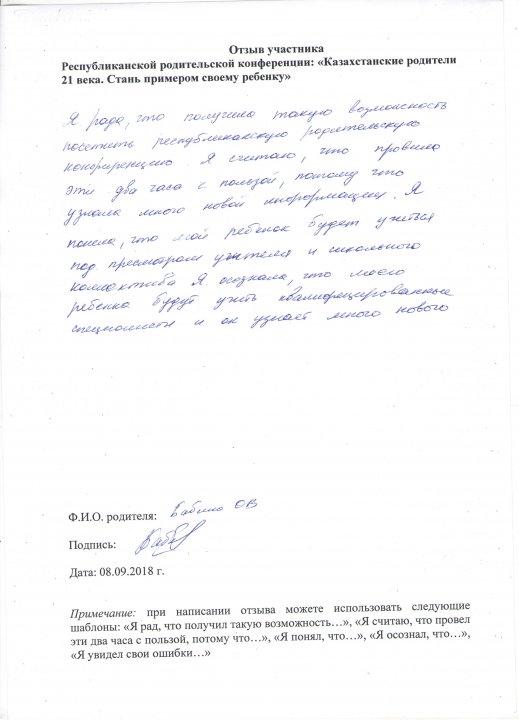 Отзыв участника
Республиканской родительской конференции: «Казахстанские родители
21 века. Стань примером своему ребенку»
Я рада, что получила такую возможность
посетить республиканскую родительскую
конференцию Я считаю, что провела
эти два часа с пользой, потому что
узнала много новой информации. Я
поняла, что мой ребенок будет учиться
под присмотром учителя и школьного
коллектива Я осознала, что моего
ребенка будут учить квалифицированные
специалисты и он узнает много нового
Ф.И.О. родителя: ОВ
Подпись:
Дата: 08.09.2018 г.
Примечание: при написании отзыва можете использовать следующие
шаблоны: «Я рад, что получил такую возможность…», «Я считаю, что провел
эти два часа с пользой, потому что…», «Я понял, что…», «Я осознал, что…»,
«Я увидел свои ошибки…»